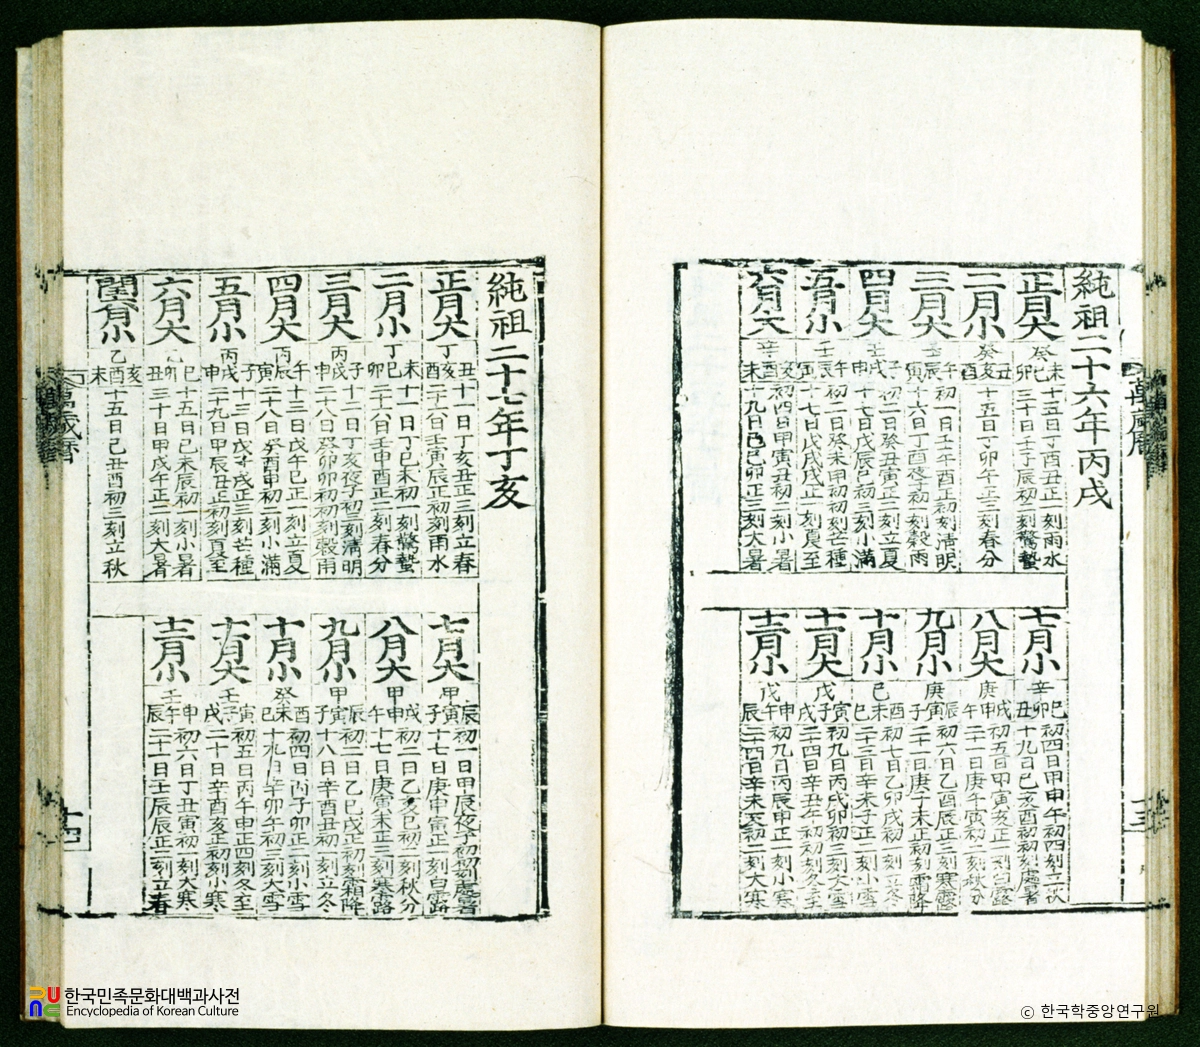 純祖二十六年丙戌
正月大
癸
未巳卯
十五日丁酉丑正一刻雨水
三十日壬子辰初二刻驚蟄
二月小
癸
丑亥酉
十五日丁卯午正三刻春分
三月大
壬
午辰寅
初一日壬午酉正初刻清明
十六日丁酉夜子初一刻穀雨
四月大
壬
子戌申
初二日癸丑寅正二刻立夏
十七日戊辰巳初三刻小滿
五月小
壬
午辰寅
初二日癸未申初初刻芒種
十七日戊戌戌正一刻夏至
六月大
辛
亥酉未
初四日甲寅丑初二刻小暑
十九日己巳卯正三刻大暑
七月小
辛
巳卯丑
初四日甲申午初四刻立秋
十九日己亥酉初初刻處暑
八月大
庚
戌申午
初五日甲寅亥正一刻白露
二十一日庚午寅初二刻秋分
九月小
庚
辰寅子
初六日乙酉辰正三刻寒露
二十一日庚子未正初刻霜降
十月小
己
酉未巳
初七日乙卯戌初一刻立冬
二十三日辛未子正二刻小雪
十一月大
戊
寅子戌
初九日丙戌卯初三刻大雪
二十四日辛丑午初初刻冬至
十二月小
戊
申午辰
初九日丙辰申正一刻小寒
二十四日辛未初二刻大寒
萬歲曆
十三
純祖二十七年丁亥
正月大
丁
丑亥酉
十一日丁亥丑正三刻立春
二十六日壬寅辰正初刻雨水
二月小
丁
未巳卯
十一日丁巳未初一刻驚蟄
二十六日壬申酉正二刻春分
三月大
丙
子戌申
十二日丁亥夜子初三刻清明
二十八日癸卯卯初初刻穀雨
四月大
丙
午辰寅
十三日戊午巳正一刻立夏
二十八日癸酉申初二刻小滿
五月小
丙
子戌申
十三日戊子戌正三刻芒種
二十九日甲辰丑正初刻夏至
六月大
乙
巳卯丑
十五日己未辰初一刻小暑
三十日甲戌午正二刻大暑
閏六月小
乙
亥酉未
十五日己丑酉初三刻立秋
七月大
甲
辰寅子
初一日甲辰夜子初初刻處暑
十七日庚申寅正一刻白露
八月大
甲
戌申午
初二日乙亥巳初二刻秋分
十七日庚寅未正三刻寒露
九月小
甲
辰寅子
初二日乙巳戌正初刻霜降
十八日辛酉丑初一刻立冬
十月小
癸
酉未巳
初四日丙子卯正二刻小雪
十九日辛卯午初二刻大雪
十一月大
壬
寅子戌
初五日丙午申正四刻冬至
二十日辛酉亥正初刻小寒
十二月小
壬
申午辰
初六日丁丑寅初一刻大寒
二十一日壬辰辰正二刻立春
萬歲曆
十四
한국민족문화대백과사전
Encyclopedia of Korean Culture
ⓒ 한국학중앙연구원